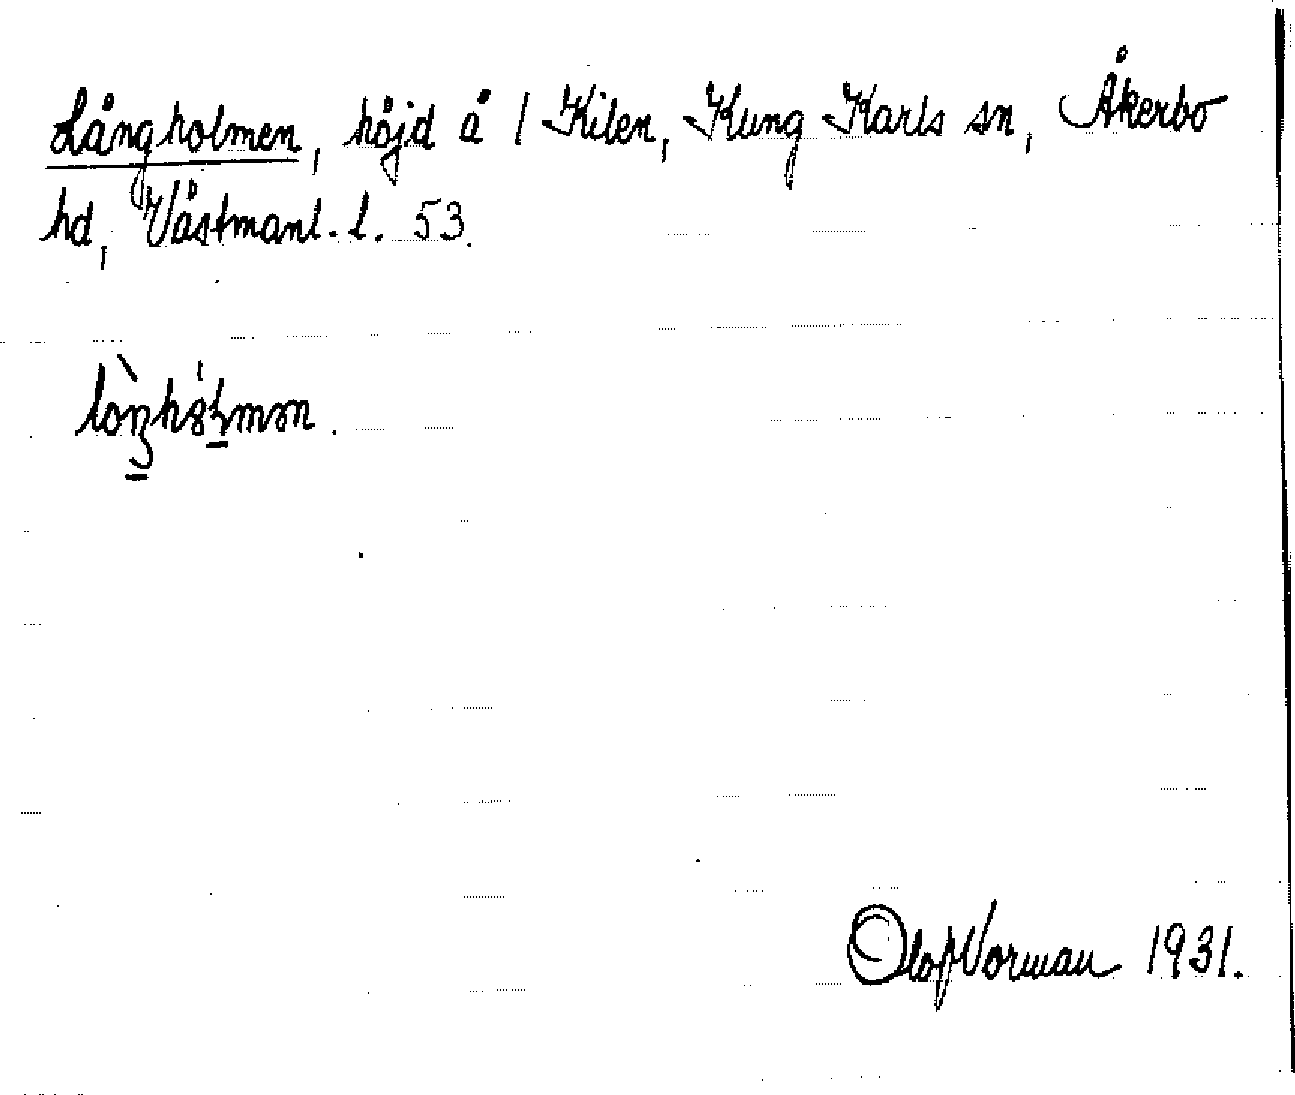 Långholmen, höjd å 1 Kilen, Kung Karls sn, Åkerbo
hd, Västmanl. l. 53.
Olof Vorman 1931.